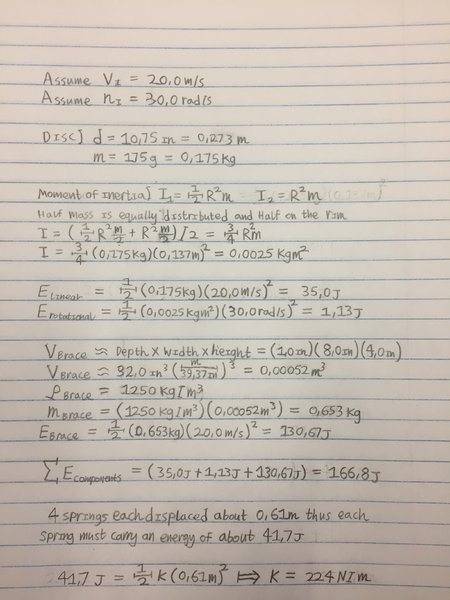 Assume V_I = 20,0 m/s
Assume n_I = 30,0 rad/s
DISC] d = 10,75 in = 0,273 m
m = 175 g = 0,175 kg
Moment of inertia] I₁ = 1/2 R²m I₂ = R²m
Half mass is equally distributed and Half on the rim
I = (1/2 R² m/2 + R² m/2)/2 = 3/4 R²m
I = 3/4 (0,175kg)(0,137m)² = 0,0025 kgm²
E_Linear = 1/2 (0,175kg)(20,0m/s)² = 35,0J
E_rotational = 1/2 (0,0025kgm²)(30,0rad/s)² = 1,13J
V_Brace ≈ Depth x width x height = (1,0in)(8,0in)(4,0in)
V_Brace ≈ 32,0in³ (m/39,37in)³ = 0,00052m³
ρ_Brace = 1250 kg/m³
m_Brace = (1250 kg/m³)(0,00052m³) = 0,653kg
E_Brace = 1/2 (0,653kg)(20,0m/s)² = 130,67J
∑E_components = (35,0J + 1,13J + 130,67J) = 166,8J
4 springs each displaced about 0,61m thus each
spring must carry an energy of about 41,7J
41,7J = 1/2 K(0,61m)² ⟹ K = 224N/m